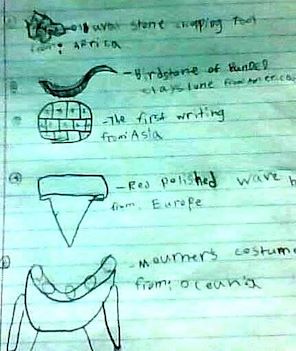 stone chopping tool
from: Africa
- Birdstone of Banded
claystone from America
- The first writing
from Asia
- Red polished wave
from: Europe
- Mourners costume
from: Oceania